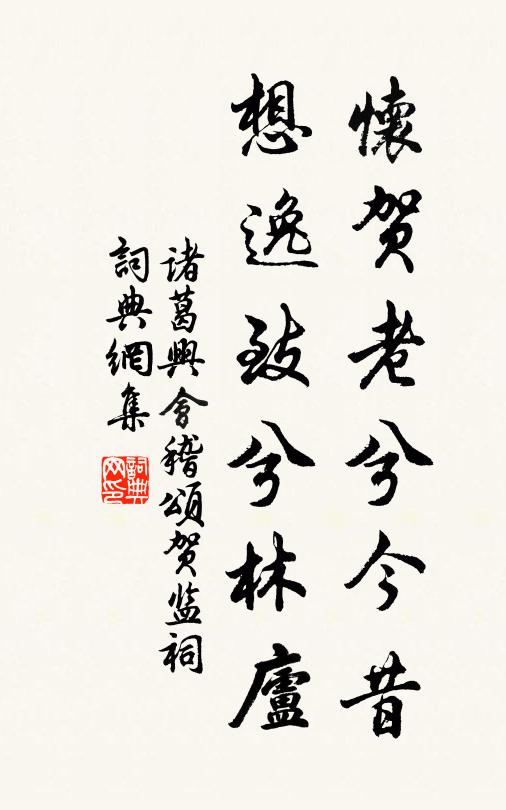 懷賀老兮今昔
想逸致兮林廬
诸葛興會稽頌賀监祠
詞典網集
詞典网印